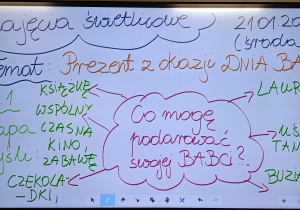 ajęcia świetlicowe
21.01.20
(środa
Temat: Prezent z okazji DNIA BA
KSIĄŻKĘ
WSPÓLNY
CZAS NA
KINO
ZABAWĘ
CZEKOLA-
-DKI,
1
apa
yśli:
Co mogę
podarować
swojej BABCI?
LAUR
UŚ
TAN
BUZIA